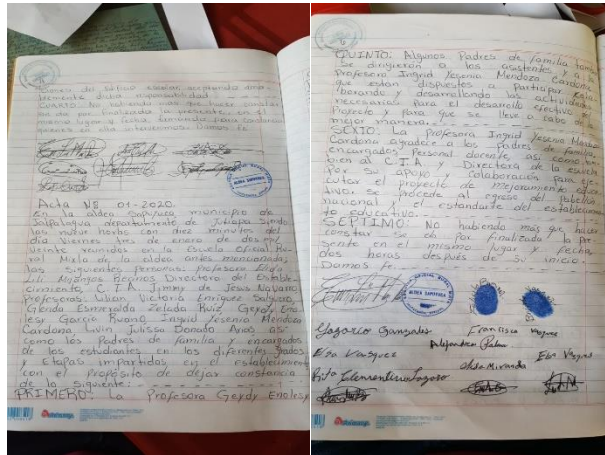 ciones del
escolar aceptando ama-
blemente dicha responsabilidad
CUARTO: No habiendo más que hacer constar
se da por finalizada la presente, en el
mismo lugar y fecha, firmando para constancia
quienes en ella intervenimos. Damos Fe.
ALDEA SAPUYUCA
Acta N8 01-2020.
En la aldea Sapuyuca, municipio de
Jalpatagua, departamento de Jutiapa siendo
las nueve horas con diez minutos del
día viernes tres de enero de dos mil
veinte reunidos en la Escuela Oficial Ru-
ral Mixta de la aldea antes mencionada,
las siguientes personas: profesora
Lili Directora del Estable-
cimiento, C.T.A. Jimmy de Jesús Navarro
Profesoras: Lilian Victoria Enríquez
Glenda Esmeralda Zelada Ruiz, Geydy Eno-
lesy García Ruano, Ingrid Yesenia Mendoza
Cardona, Livin Julissa Donado Arias así
como los Padres de familia y encargados
de los estudiantes en los diferentes grados
y Etapas impartidos en el establecimiento
con el propósito de dejar constancia
de lo siguiente:
PRIMERO: La Profesora Geydy Enolesy
QUINTO: Algunos Padres de familia
se dirigieron a los asistentes y a
Profesora Ingrid Yesenia Mendoza Cardona
que están dispuestos a Participar
borando y desarrollando las actividades
necesarias para el desarrollo efectivo del
Proyecto y para que se lleve a cabo de
mejor manera.
SEXTO: La profesora Ingrid Yesenia Mendoza
Cardona agradece a los padres de familia,
encargados Personal docente, así como
bien al C.T.A. Directora de la escuela
Por su apoyo y colaboración para eje-
cutar el proyecto de mejoramiento educa-
tivo, se procede al egreso del pabellón
nacional y el estandarte del establecimien-
to educativo.
SEPTIMO: No habiendo más que hacer
constar se da por finalizada la pre-
sente en el mismo lugar y fecha,
dos horas después de su inicio.
Damos fe.
ALDEA SAPUYUCA
Gonzales
Francisca
Alejandra Palma
Elsa Vasquez
Miranda
Rita Clementina